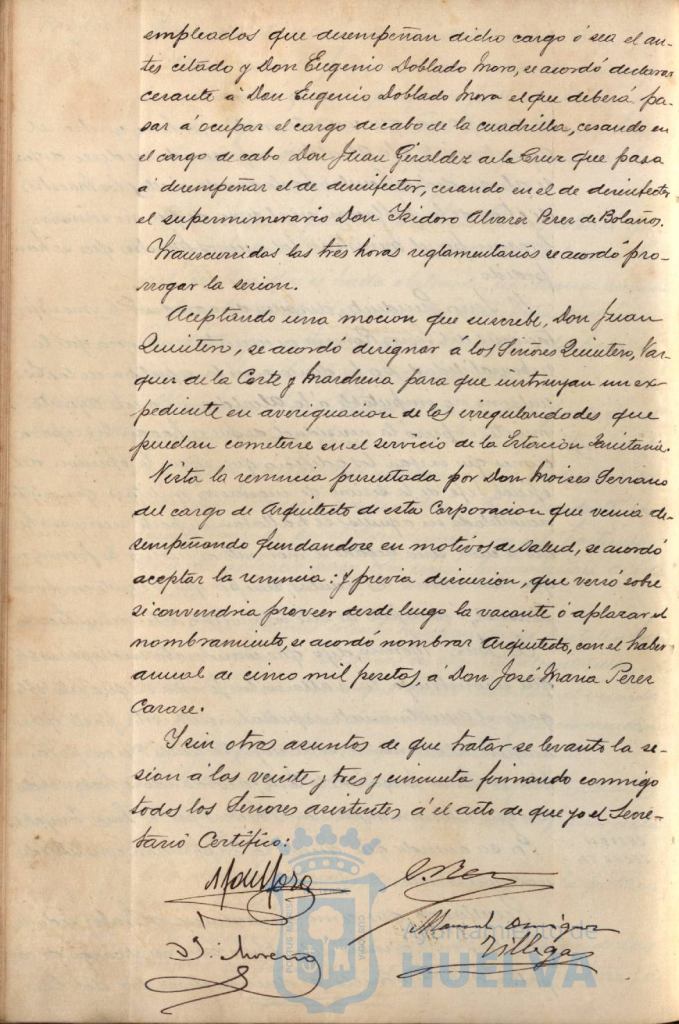 empleados que desempeñan dicho cargo ó sea el an-
tes citado y Don Eugenio Doblado Mora, se acordó declarar
cesante á Don Eugenio Doblado Mora el que deberá pa-
sar á ocupar el cargo de cabo de la cuadrilla, cesando en
el cargo de cabo Don Juan Giraldez de la Cruz que pasa
á desempeñar el de desinfector, cesando en el de desinfector
el supernumerario Don Isidoro Alvarez Perez de Bolaños.
Transcurridas las tres horas reglamentarias se acordó pro-
rrogar la sesion.
Aceptando una mocion que suscribe, Don Juan
Quintero, se acordó designar á los Señores Quintero, Vaz-
quez de la Corte y Marchena para que instruyan un ex-
pediente en averiguacion de las irregularidades que
puedan cometerse en el servicio de la Estacion Sanitaria.
Vista la renuncia presentada por Don Moises Serrano
del cargo de Arquitecto de esta Corporacion que venia de-
sempeñando fundandose en motivos de salud, se acordó
aceptar la renuncia: y previa discusion, que versó sobre
si convendria proveer desde luego la vacante ó aplazar el
nombramiento, se acordó nombrar Arquitecto, con el haber
anual de cinco mil pesetas, á Don José Maria Perez
Carasa.
Y sin otros asuntos de que tratar se levantó la se-
sion á las veinte y tres y cincuenta firmando conmigo
todos los Señores asistentes á el acto de que yo el Secre-
tario Certifico:
J. Moreno
Manuel
Villega
Ayuntamiento de
HUELVA